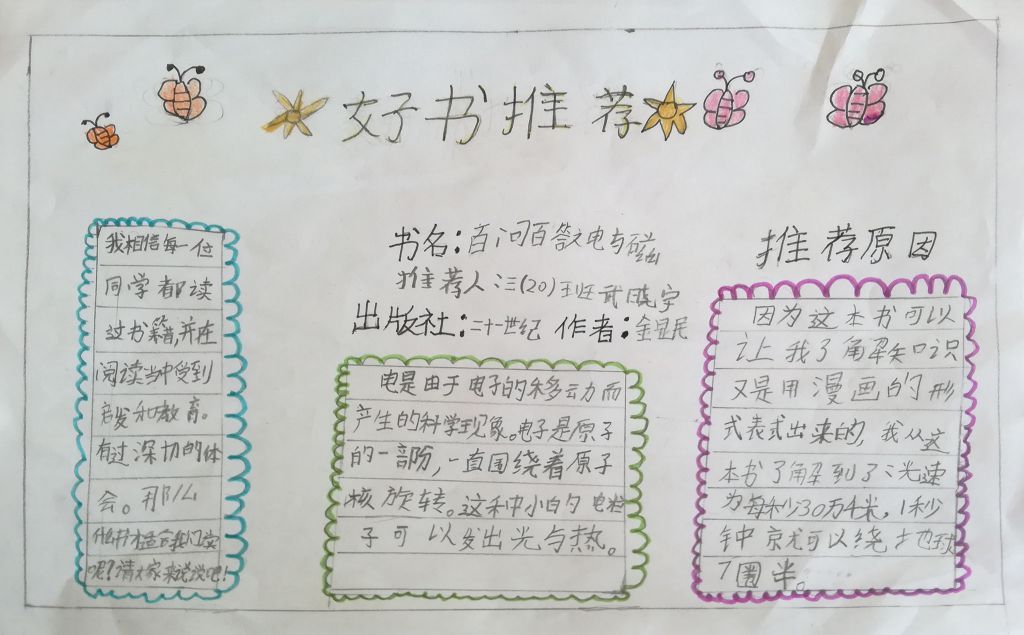 好书推荐
我相信每一位
同学都读
过书籍,并在
阅读当中受到
启发和教育。
有过深切的体
会。那么
什么书才适合我们读
呢?请大家来说说吧!
书名:百问百答电与磁
推荐人:三(20)班武晓宇
出版社:二十一世纪 作者:金显民
电是由于电子的移动而
产生的科学现象。电子是原子
的一部份,一直围绕着原子
核旋转。这种小的电粒
子可以发出光与热。
推荐原因
因为这本书可以
让我了解知识
又是用漫画的形
式表式出来的,我从这
本书了解到了光速
为每秒30万千米,1秒
钟就可以绕地球
7圈半。